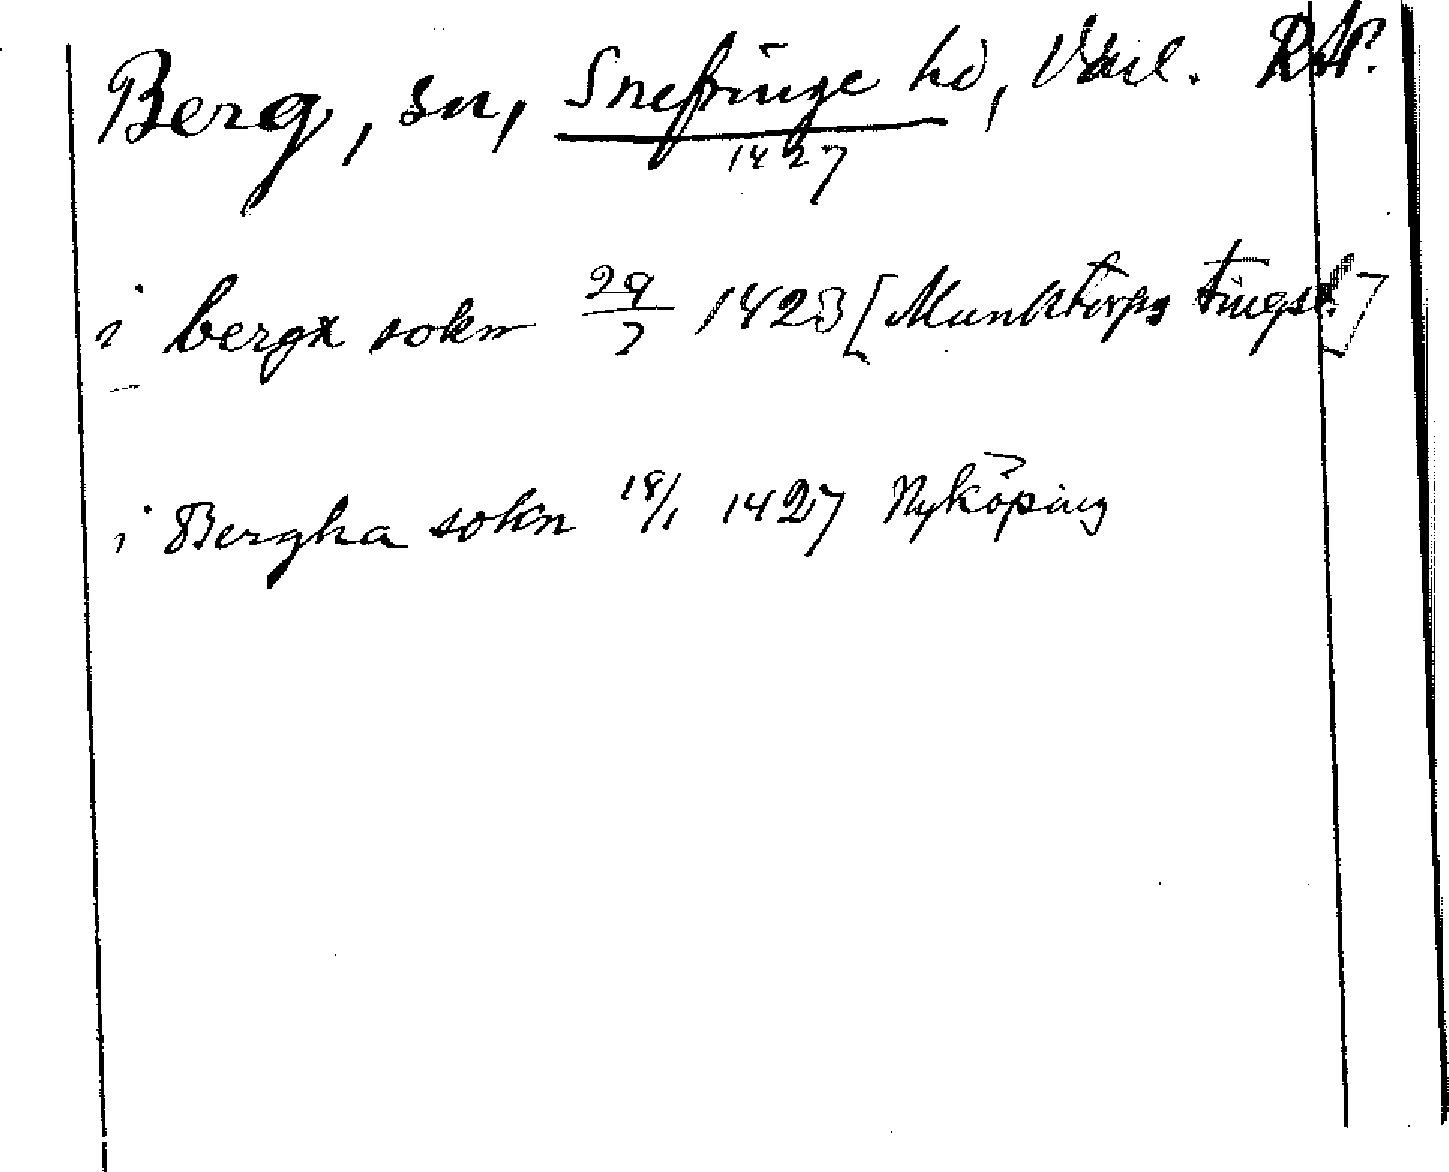 Berg, sn, Snefringe hd, Vstml. RAP.
1427
i bergx sokn 29/7 1423 [Munktorps tingst.]
i Bergha sokn 18/1 1427 Nyköping